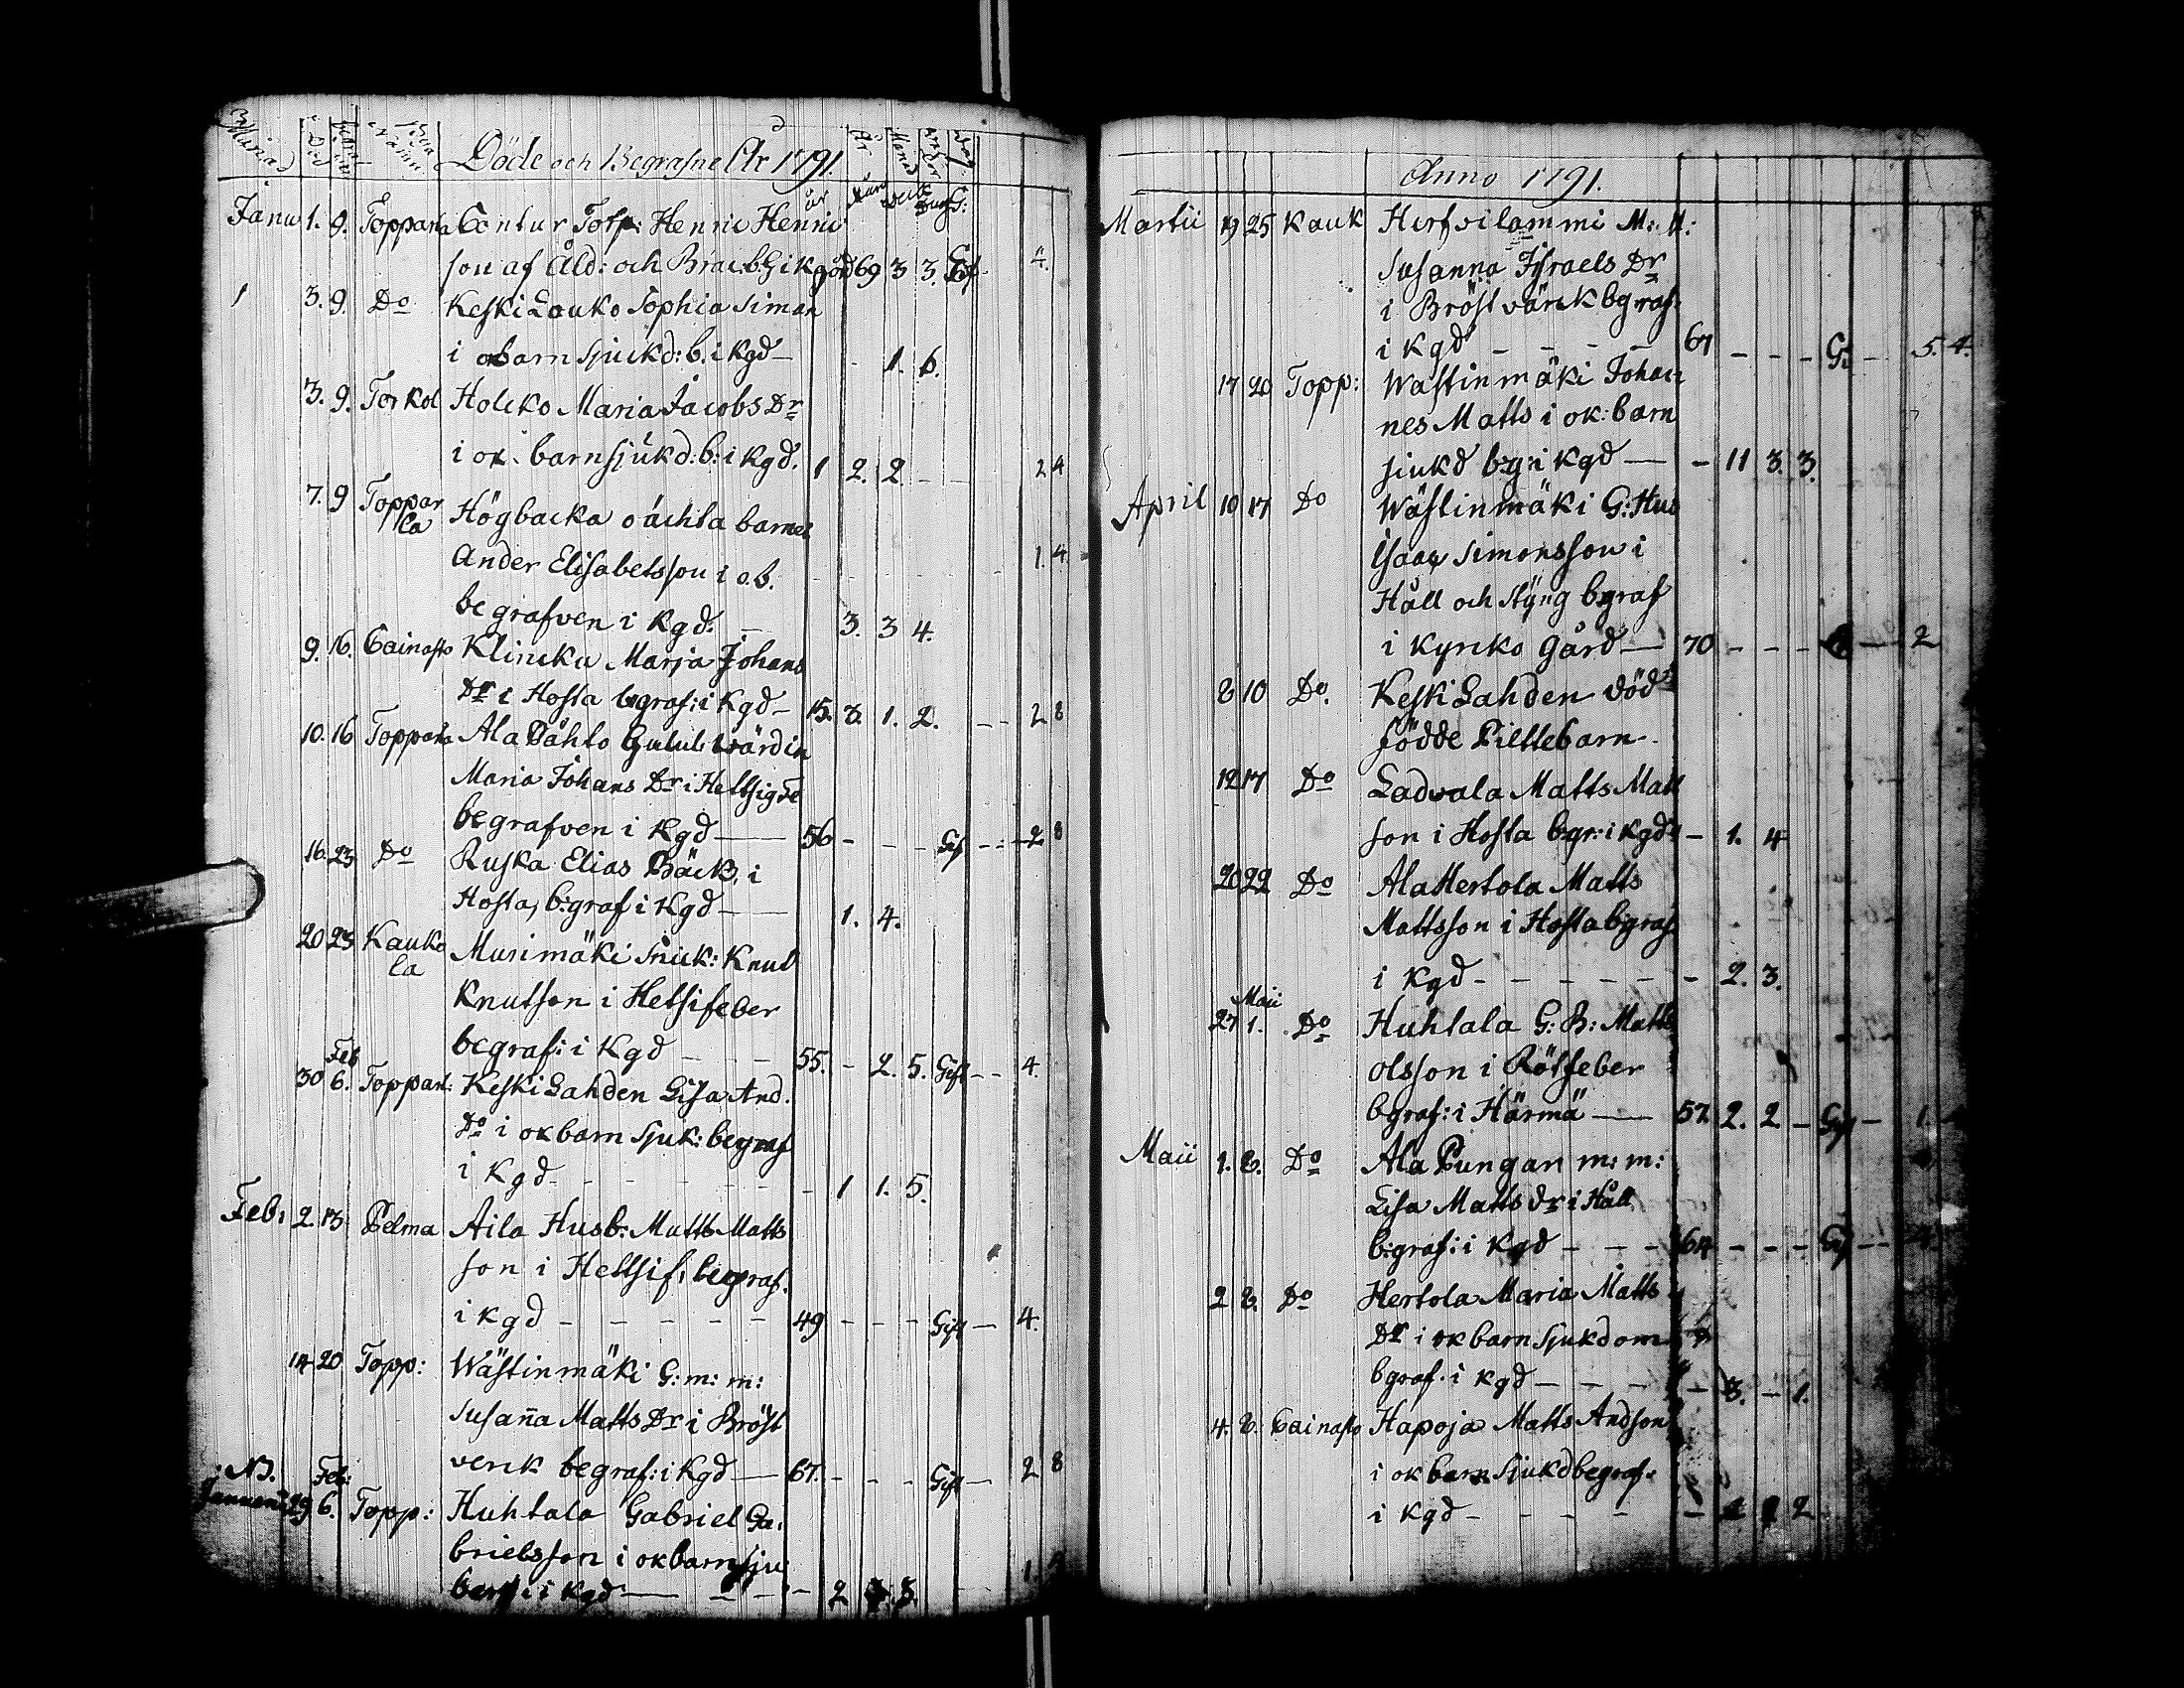 Döde och Begrafne År 1791.
Janu 1. 9. Toppala Contur Torp: Henric Henric
son af Åld: och Bråc b:G i Kgård 69 3 3. 4.
1 3. 9. Do Keski Louko Sophia Simon
i ok barnsjuckd: b. i Kgd — 1. 6.
3. 9. Torkol Holcko Maria Jacobs Dr
i ok. barnsjukd: b: i Kgd. 1 2. 2. 2 4
7. 9 Toppar Högbacka oächta barnet
la
Ander Elisabetsson i o.b. 1. 4
begrafven i Kgd. 3. 3 4.
9. 16. Cainasto Klincku Marja Johans
Dr i Hosta bgraf: i Kgd — 15. 3. 1. 2. 2 8
10. 16 Toppala Ala Påhto Gulul: wärdin
Maria Johans Dr i Hettsig Fe
begrafven i Kgd — 56 - - - Gif - - 2 8
16. 23 Do Ruska Elias Bäck, i
Hosta, b:graf i Kgd — 1. 4.
20 23 Kauko Murimäki Snick: Knut
la
Knutson i Hetsifeber
begraf: i Kgd — 55. - 2. 5. Gift - - 4.
Feb
30 6. Topparl: Keski Lahden Lisa And.
Dr i ok barn Sjuk: begraf
i Kgd - - - 1 1. 5.
Feb: 2. 13 Pelma Aila Husb: Matts Matts
son i Hettsif: begraf.
i kgd - - - - - 49 - - - Gift — 4.
14 20 Topp: Wästinmäki G: m: m:
Susanna Matts Dr i Bröst
verck begraf: i Kgd — 67. - - - Gift — 2 8
NB. Feb:
Januari 29 6. Topp: Huhtala Gabriel Ga:
brielsson i ok barnsju
i kgd — — 2 1.
Anno 1791.
Martii 19 25 Kauk Herfvilammi M: M:
Susanna Israels Dr
i Bröstvärck bgraf.
i Kgd - - - 67 - - - G: - - 5. 4.
17 20 Topp: Wastinmäki Johan
nes Matts i ok: barn
siukd bg: i kgd — - 11 3. 3.
April 10 17 Do Wästinmäki G: Hus
Isaac Simonsson i
Håll och Styng bgraf
i Kyrcko Gård — 70 - - - — 2
8 10 Do. Keski Lahden död
födde Piltebarn.
12 17 Do Ladvala Matts Matt
son i Hosta bgr: i kgd - 1. 4
20 22 Do Ala Hertola Matts
Mattsson i Hosta bgraf
i Kgd - - - - - - 2. 3.
Maii
27 1. Do Huhtala G: B: Matts
Olsson i Rötfeber
bgraf: i Härmä — 57. 2. 2. - Gif — 1.
Maii 1. 8. Do Ala Pungan m: m:
Lisa Matts dr i Håll
b:graf: i Kgd - - - 64 - - - Gif - - 4.
2 8. Do Hertola Maria Matts
Dr i ok barn Sjukdom
bgraf. i kgd — - - - 3. - 1.
4. 8. Cainasto Hapoja Matts Andson
i ok barn Sjukd begraf.
i Kgd - - - - - 2